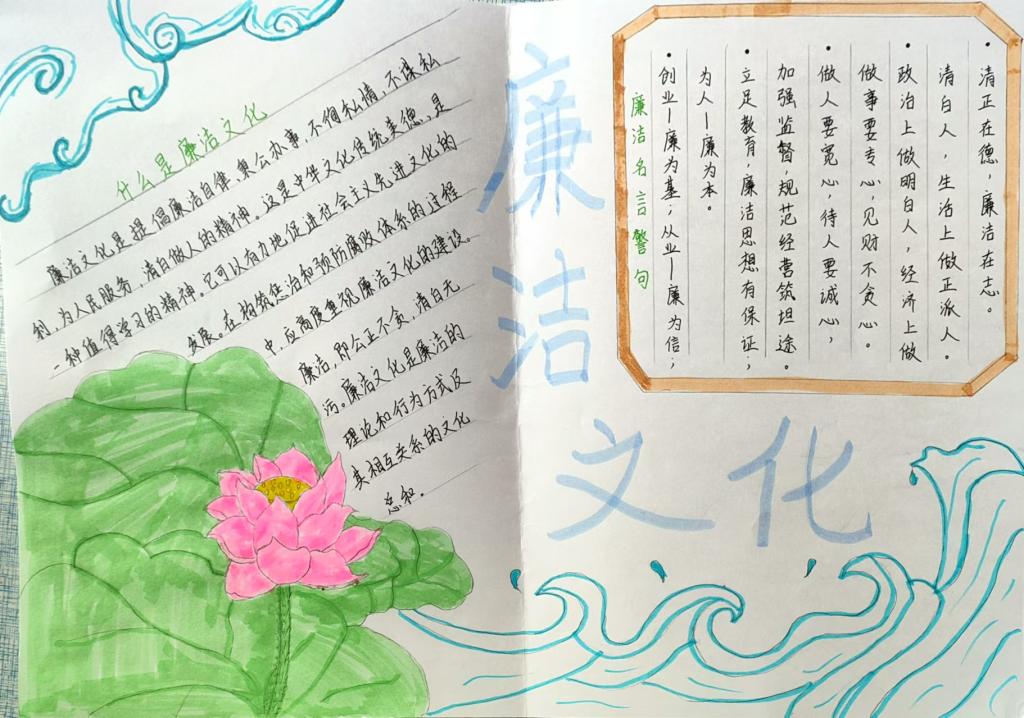 什么是廉洁文化
廉洁文化是提倡廉洁自律,秉公办事,不徇私情,不谋私
利,为人民服务,清白做人的精神。这是中华文化传统美德,是
一种值得学习的精神。它可以有力地促进社会主义先进文化的
发展。在构筑惩治和预防腐败体系的过程
中,应高度重视廉洁文化的建设。
廉洁,即公正不贪,清白无
污。廉洁文化是廉洁的
理论和行为方式及
其相互关系的文化
总和。
廉
洁
文化
•清正在德,廉洁在志。
清白人,生活上做正派人。
•政治上做明白人,经济上做
做事要专心,见财不贪心。
•做人要宽心,待人要诚心,
加强监督,规范经营筑坦途。
•立足教育,廉洁思想有保证;
为人—廉为本。
•创业—廉为基;从业—廉为信;
廉洁名言警句